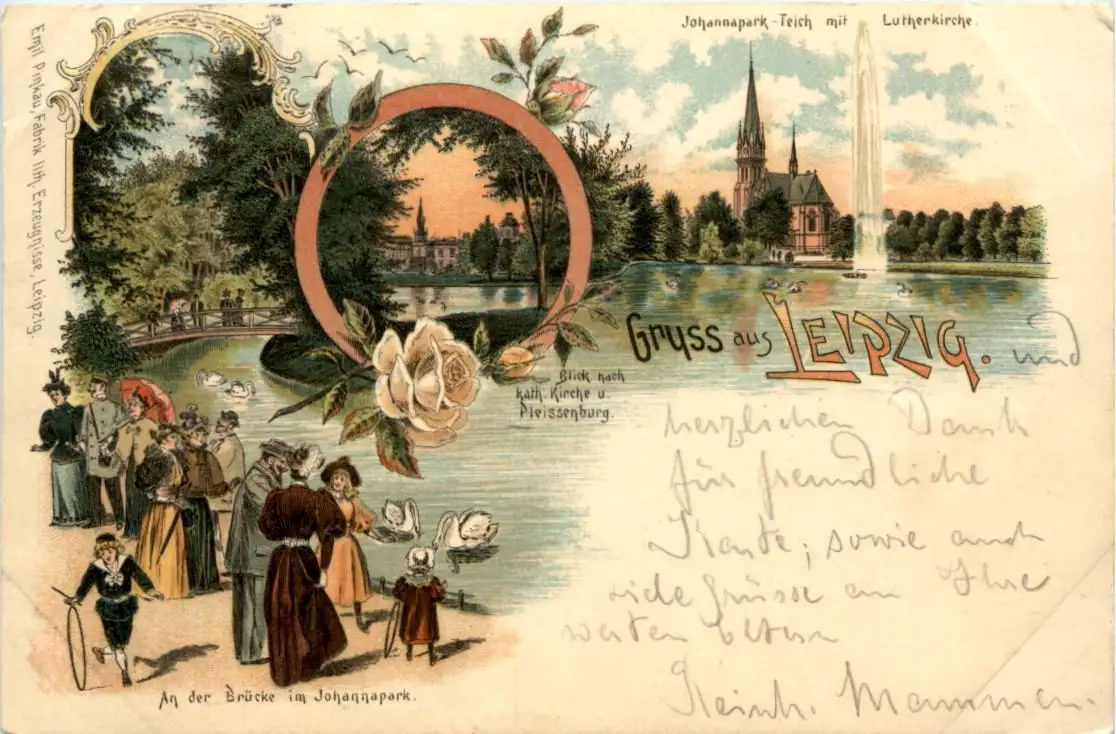 Johannapark-Teich mit Lutherkirche.
Emil Pinkau, Fabrik lith. Erzeugnisse, Leipzig.
Gruss aus LEIPZIG. und
Blick nach
kath. Kirche u.
Pleissenburg.
herzlichen Dank
für freundliche
Karte; sowie auch
viele Grüsse an Ihre
werten Eltern
Reinh. Mammen.
An der Brücke im Johannapark.